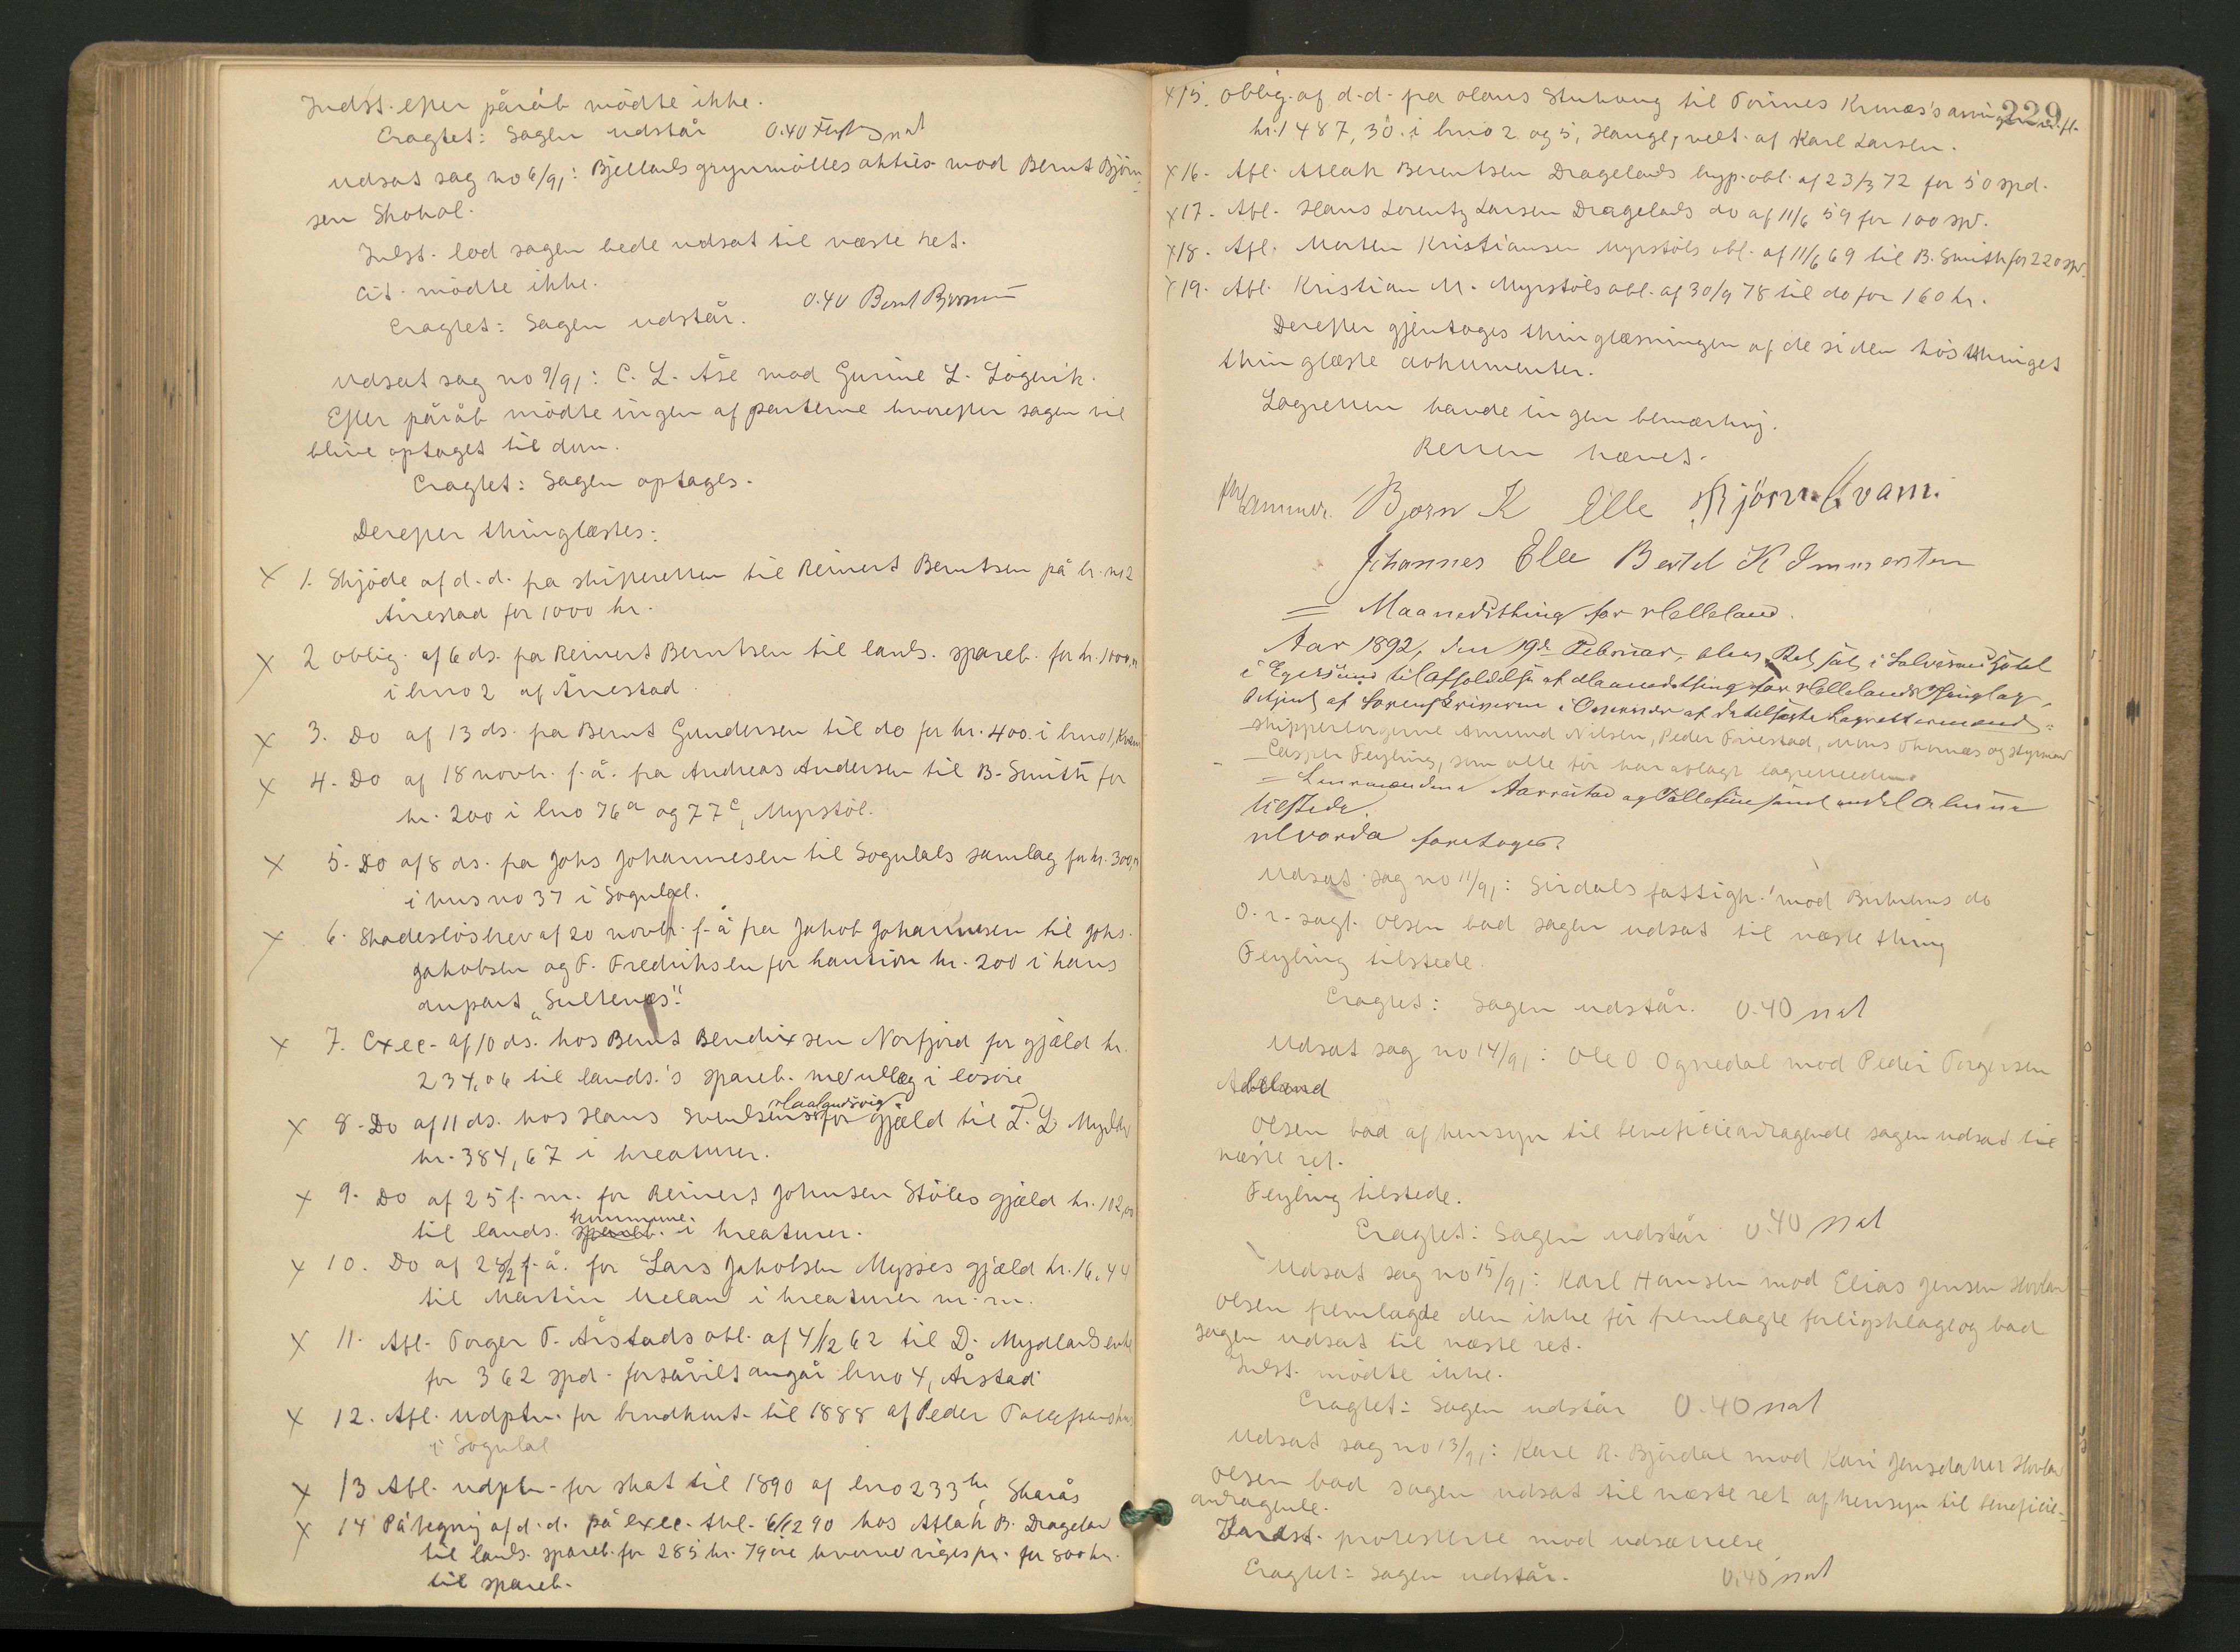 Indst. efter påråb mödte ikke.
Eragtet: Sagen udstår 0.40
Udsat sag no 6/91: Bjellands grynmölles akties. mod Bernt Björn-
sen Skohol.
Indst. lod sagen bede udsat til næste ret.
Cit. mödte ikke.
Eragtet: Sagen udstår. 0.40
Udsat sag no 9/91: C. L. Åse mod Gurine L. Lögevik.
Efter påråb mödte ingen af parterne hvorefter sagen vil
blive optaget til dom.
Eragtet: Sagen optages.
Derefter thinglæstes:
x 1. Skjöde af d.d. fra skifteretten til Reinert Berntsen på br. no 2
Årrestad for 1000 kr.
x 2 oblig. af 6 ds. fra Reinert Berntsen til lands. spareb. for kr. 1000,
i bno 2 af Årrestad.
x 3. Do af 13 ds. fra Bernt Gundersen til do for kr. 400. i bno 1, Kvam
x 4. Do af 18 novb. f.å. fra Andreas Andersen til B. Smith for
kr. 200 i lno 76a og 77c, Myrstöl.
x 5. Do af 8 ds. fra Johs Johannesen til Sogndals samlag for kr. 300,
i hus no 37 i Sogndal.
x 6. Skadeslösbrev af 20 novb. f.å fra Jakob Johannesen til Johs.
Jakobsen og F. Fredriksen for kaution kr. 200 i hans
anpart "Sultenæs".
x 7. Exec. af 10 ds. hos Bernt Bendixsen Norfjord for gjæld kr.
234,06 til lands.'s spareb. med udlæg i lösöre
x 8. Do af 11 ds. hos Hans Svendsens Haalandsvig for gjæld til T. L. Mydl
kr. 384,67 i kreaturer.
x 9. Do af 25 f.m. for Reinert Johnsen Stöles gjæld kr. 102,00
til lands. spareb. kommune. i kreaturer.
x 10. Do af 28/12 f.å. for Lars Jakobsen Mysses gjæld kr. 16,44
til Martin Meland i kreaturer m.m.
x 11. Afl. Torger T. Årstads obl. af 4/12 62 til D. Mydlands enke
for 362 spd. forsåvidt angår bno 4, Årstad
x 12. Afl. udptn. for brndkont. til 1888 af Peder Tollefsens hus
i Sogndal
x 13 Afl. udptn. for skat til 1890 af lno 233 Skarås
x 14 Påtegning af d.d. på exec. thl. 6/12 90 hos Atlak B. Dragelan
til lands. spareb. for 285 kr. 79 öre hvorved viges pr. for 800 kr.
til spareb.
229
x 15. oblig. af d.d. fra Olaus Stuhaug til Törrines Krunæs's
kr. 1487,30. i bno 2 og 5, Hauge, vedt. af Karl Larsen.
x 16. Afl. Atlak Berentsen Dragelands hyp.obl. af 23/3 72 for 50 spd.
x 17. Afl. Hans Lorentz Larsen Dragelads do af 11/6 59 for 100 spd.
x 18. Afl. Morten Kristiansen Myrstöls obl. af 11/6 69 til B. Smith for 220 spd.
x 19. Afl. Kristian M. Myrstöls obl. af 30/9 78 til do for 160 kr.
Derefter gjentoges thinglæsningen af de siden hösthinget
thinglæste dokumenter.
Lagretten havde ingen bemærkning.
Retten hævet.
Hammer. Bjorn K Elle Björn Kvam.
Johannes Elle Bertel K Immersten
= Maanedsthing for Helleland.
Aar 1892, den 19de Februar, blev Ret sat i Salvesens Hotel
i Egersund til Afholdelse af Maanedsthing for Hellelands Thinglag,
betjent af Sorenskriveren i Overvær af de tilforte Lagrettesmænd:
skipperborgerne Amund Nilsen, Peder Friestad, Mons Thornæs og styrmand
Casper Feyling, som alle för har aflagt lagretteeden.
= Lensmændene Aarrestad og Tollefsen samt endel Almue
tilstede.
Hvorda foretoges:
Udsat sag no 11/91: Sirdals fattigk. mod Birkrems do
O.r. sagf. Olsen bad sagen udsat til næste thing
Feyling tilstede.
Eragtet: Sagen udstår. 0.40 nat
Udsat sag no 14/91: Ole O Ognedal mod Peder Torgersen
Abeland
Olsen bad af hensyn til beneficieandragende sagen udsat til
næste ret.
Feyling tilstede.
Eragtet: Sagen udstår 0.40 nat
Udsat sag no 15/91: Karl Hansen mod Elias Jensen Hovlan
Olsen fremlagde den ikke för fremlagte forligsklage og bad
sagen udsat til næste ret.
Indst. mödte ikke.
Eragtet: Sagen udstår 0.40 nat
Udsat sag no 13/91: Karl R. Bjordal mod Kari Jensdatter Hovlan
Olsen bad sagen udsat til næste ret af hensyn til beneficie-
andragende.
Indst. protesterte mod udsættelse
Eragtet: Sagen udstår. 0.40 nat